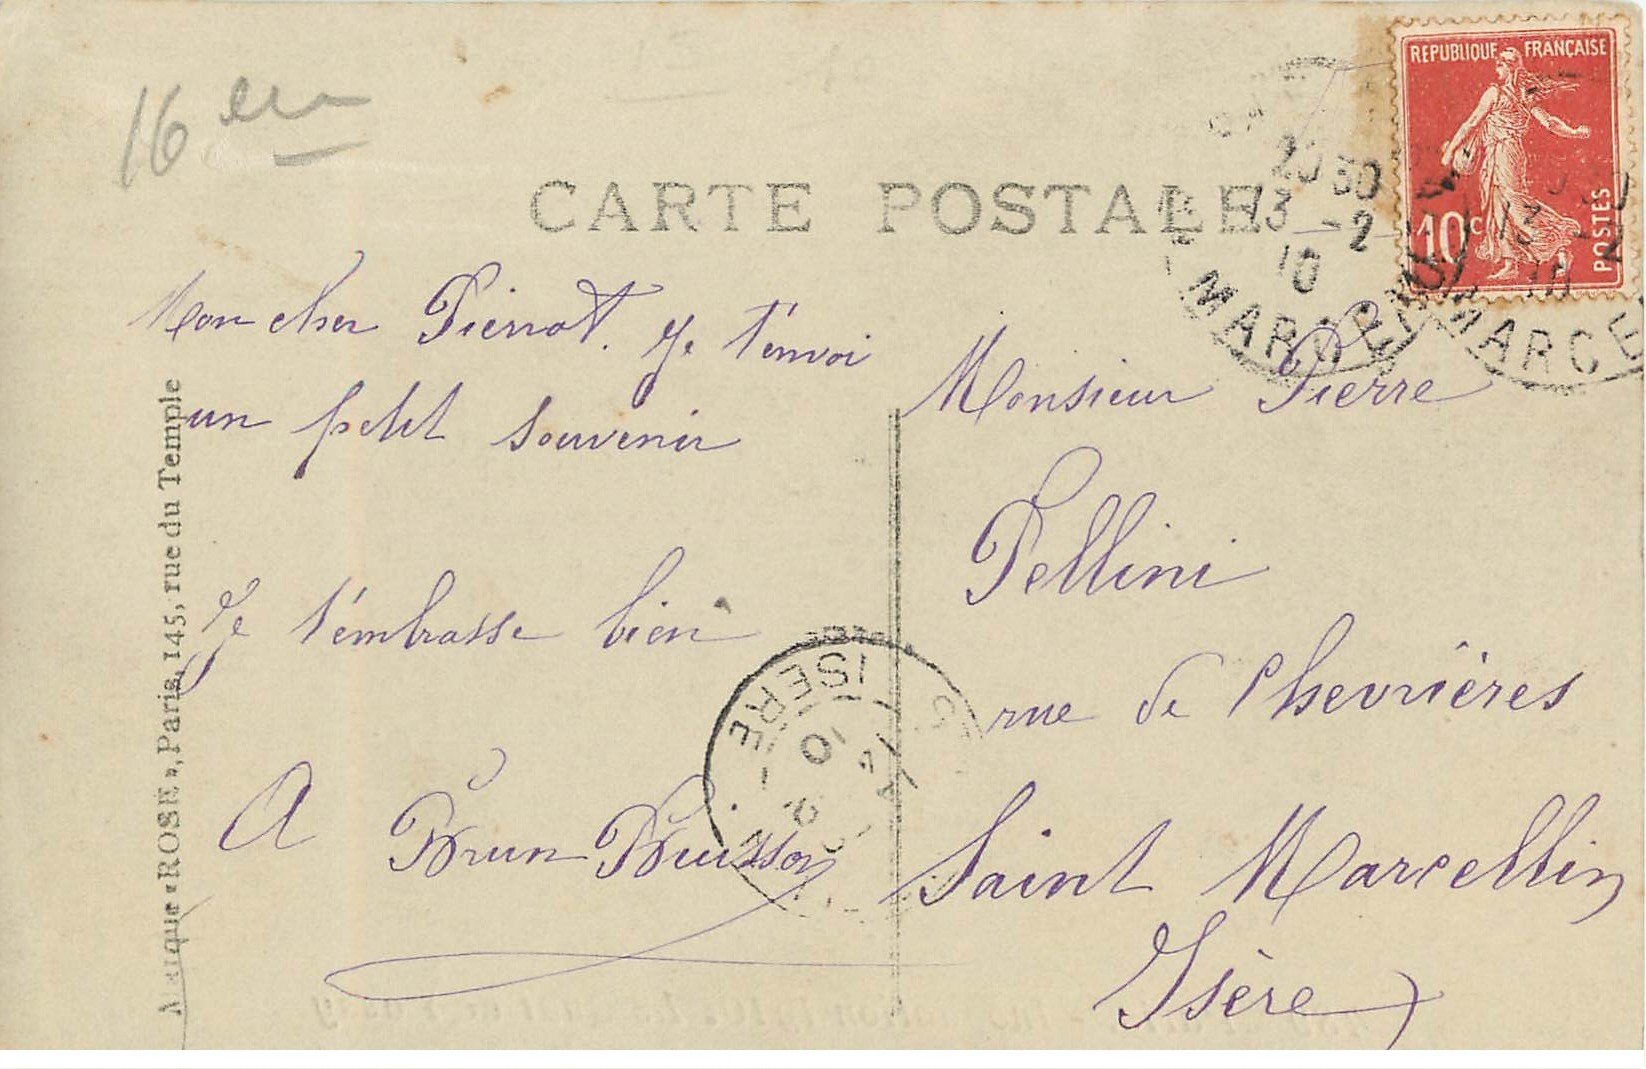 16 em
CARTE POSTALE
REPUBLIQUE FRANÇAISE
10c
POSTES
20 30
13 -2
10
13
10
MARCE
Mon cher Pierrot. Je t'envoi
un petit souvenir
Je t'embrasse bien
A Brun-Buisson
Monsieur Pierre
Pellini
rue de Chevrières
Saint Marcellin
Isère
ISERE
10
Marque "ROSE", Paris, 145, rue du Temple